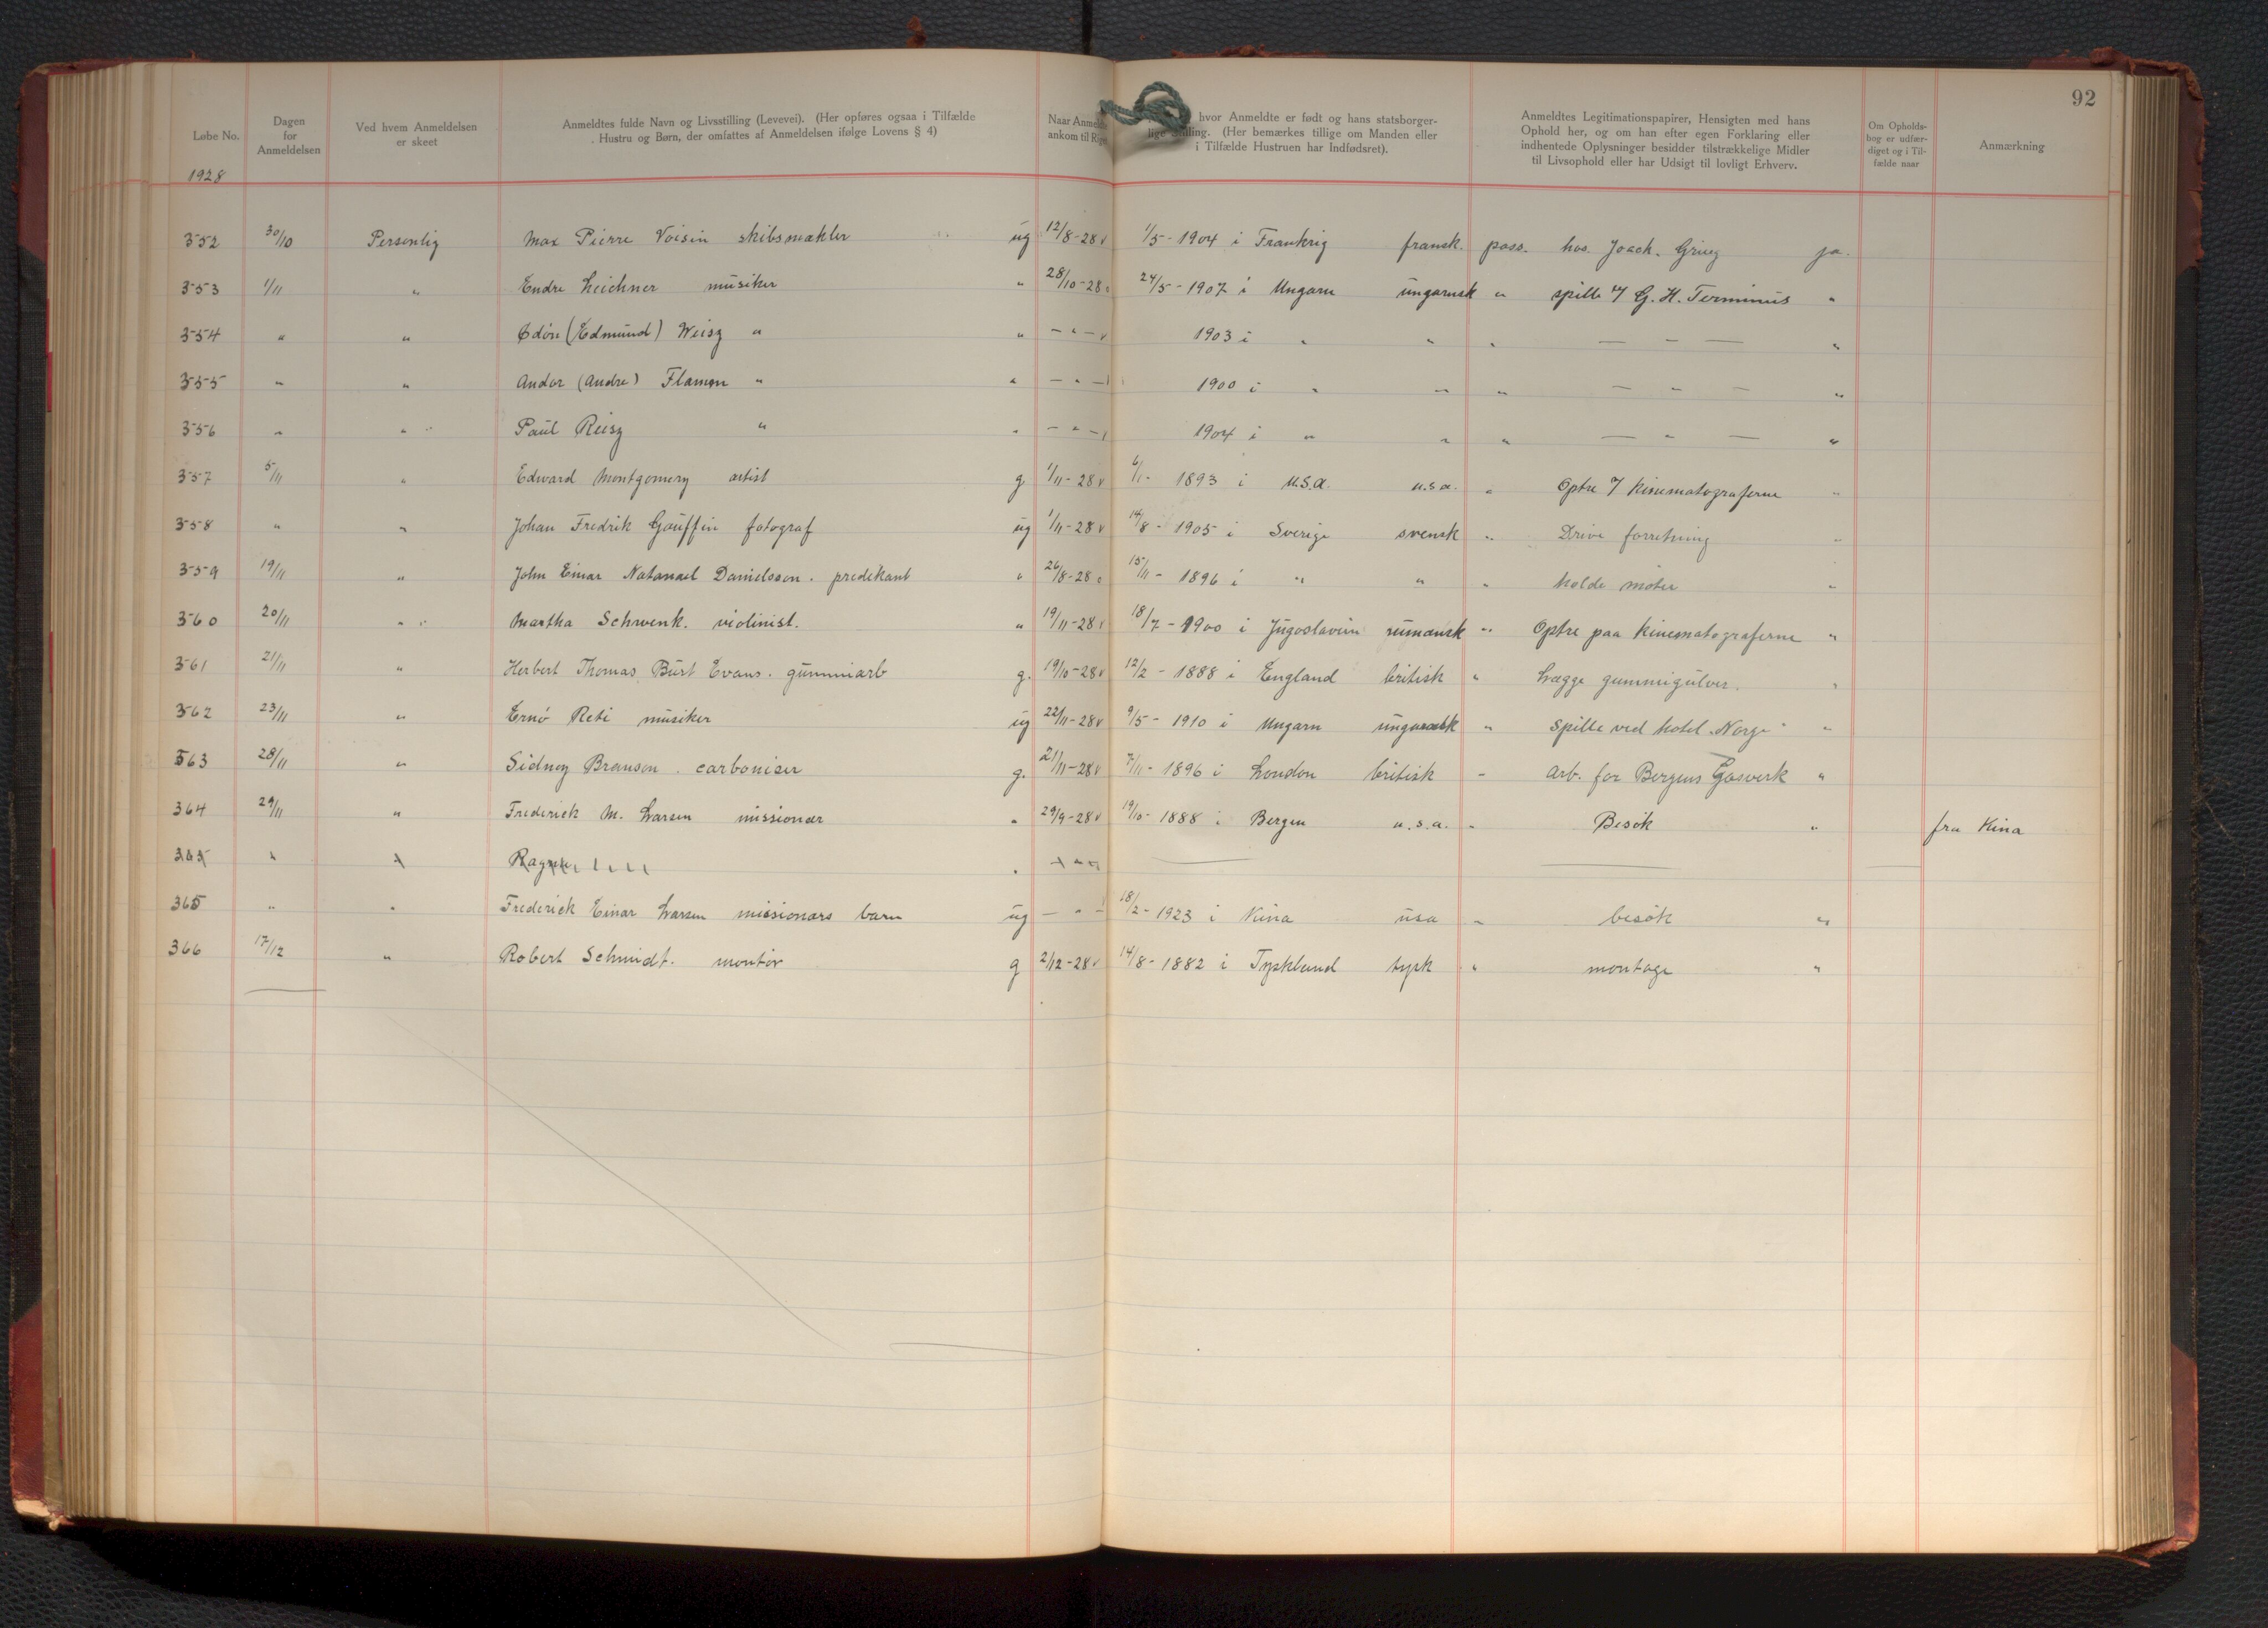 92
Løbe No.
Dagen for Anmeldelsen
Ved hvem Anmeldelsen er skeet
Anmeldtes fulde Navn og Livsstilling (Levevei). (Her opføres ogsaa i Tilfælde Hustru og Børn, der omfattes af Anmeldelsen ifølge Lovens § 4)
Naar Anmeldte ankom til
hvor Anmeldte er født og hans statsborgerlige Stilling. (Her bemærkes tillige om Manden eller i Tilfælde Hustruen har Indfødsret).
Anmeldtes Legitimationspapirer, Hensigten med hans Ophold her, og om han efter egen Forklaring eller indhentede Oplysninger besidder tilstrækkelige Midler til Livsophold eller har Udsigt til lovligt Erhverv.
Om Opholdsbog er udfærdiget og i Tilfælde naar
Anmærkning
1928
352 30/10 Personlig Max Pierre Voisin skibsmækler ug 12/8-28 v 1/5-1904 i Frankrig fransk. pass. hos. Joach. Grieg ja.
353 1/11 " Endre Leichner musiker " 28/10-28 24/5-1907 i Ungarn ungarnsk " spille v/ G. H. Terminus "
354 " " Ödön (Edmund) Weisz " " - " - v 1903 i " " " — - — "
355 " " Andor (Andre) Flamon " " - " - 1900 i " " " — " — "
356 " " Paul Reisz " " - " - 1904 i " " " — " — "
357 5/11 " Edward Montgomery artist g 1/11-28 v 6/1- 1893 i U.S.A. u.s.a. " Optre v/ Kinematograferne "
358 " " Johan Fredrik Gauffin fotograf ug 1/11-28 v 14/8-1905 i Sverige svensk " Drive forretning "
359 19/11 " John Einar Natanael Danielsson. predikant " 26/8-28 15/11-1896 i " " " holde møter "
360 20/11 " Martha Schwenk. violinist. " 19/11-28 18/7-1900 i Jugoslavien rumænsk " Optre paa Kinematograferne "
361 21/11 " Herbert Thomas Burt Evans. gummiarb g. 19/10-28 v 12/2-1888 i England britisk " Lægge gummigulver. "
362 23/11 " Ernö Reti musiker ug 22/11-28 v 9/5-1910 i Ungarn ungarsk " Spille ved Hotel "Norge" "
563 28/11 " Sidney Branson. carboniser g. 21/11-28 v 7/11-1896 i London britisk " Arb. for Bergens Gasverk "
364 29/11 " Frederick M. Larsen missionær " 29/9-28 v 19/10-1888 i Bergen u.s.a. " Besøk " fra Kina
365 " "
365 " " Frederick Einar Larsen missionærs barn ug - " - 18/2-1923 i Kina usa " besøk "
366 17/12 " Robert Schmidt. montør g 2/12-28 v 14/8-1882 i Tyskland tysk " montage "